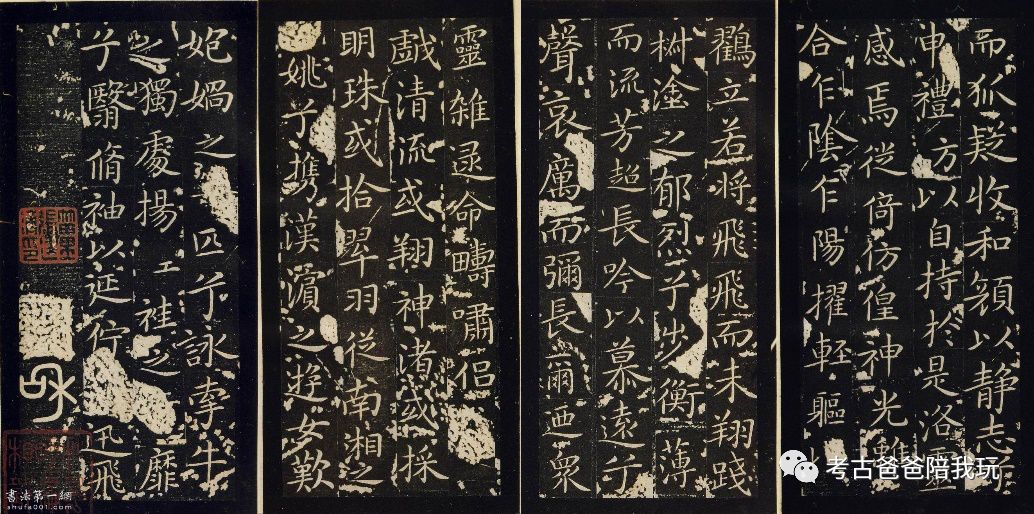 而狐疑收和顔以静志兮
申禮方以自持扵是洛靈
感焉徙倚彷徨神光離
合乍陰乍陽擢軽軀
鸖立若将飛飛而未翔踐
椒塗之郁烈兮步衡薄
而流芳超長吟以慕遠兮
聲哀厲而彌長爾迺衆
靈雜遝命疇嘯侣
戯清流或翔神渚或採
明珠或拾翠羽従南湘之
姚兮携漢濵之遊女歎
媧之匹兮詠牽牛
之獨處揚袿之靡
兮翳脩袖以延佇迅飛
考古爸爸陪我玩
書法第一網
shufa001.com